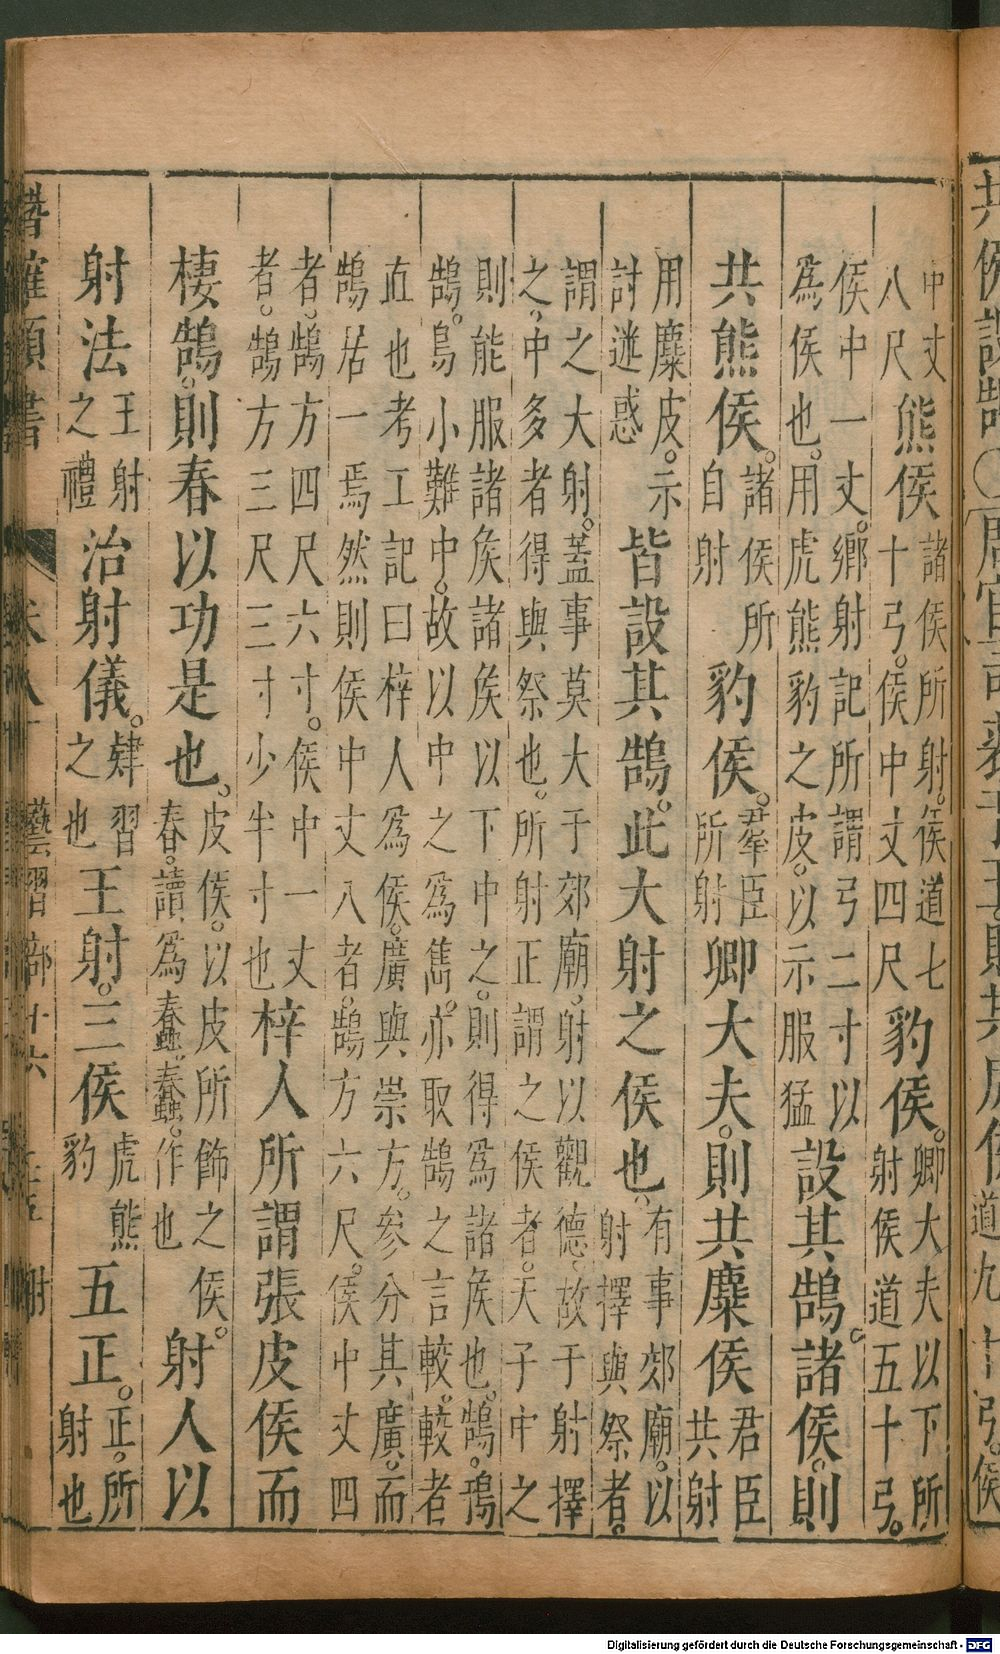 中丈
八尺
熊侯
諸侯所射。侯道七
十弓。侯中丈四尺
豹侯。
卿大夫以下所
射侯道五十弓。
侯中一丈。鄉射記所謂弓二寸以
為侯也。用虎熊豹之皮。以示服猛
設其鵠。諸侯。則
共熊侯。
諸侯所
自射
豹侯。
羣臣
所射
卿大夫。則共麋侯
君臣
共射
用麋皮。示
討迷惑
皆設其鵠。此大射之侯也。
有事郊廟。以
射擇與祭者。
謂之大射。蓋事莫大于郊廟。射以觀德。故于射擇
之。中多者得與祭也。所射正謂之侯者。天子中之
則能服諸侯諸侯以下中之。則得為諸侯也。鵠。鳱
鵠。鳥小難中。故以中之為雋。亦取鵠之言較。較者
直也考工記曰梓人為侯。廣與崇方。參分其廣。而
鵠居一焉然則侯中丈八者。鵠方六尺。侯中丈四
者。鵠方四尺六寸。侯中一丈
者。鵠方三尺三寸少半寸也
梓人所謂張皮侯而
棲鵠。則春以功是也。
皮侯。以皮所飾之侯。
春。讀為蠢。蠢。作也
射人以
射法
王射
之禮
治射儀。
肄習
之也
王射。三侯
虎熊
豹
五正。
正。所
射也
藝習部十六
射
Digitalisierung gefördert durch die Deutsche Forschungsgemeinschaft - DFG